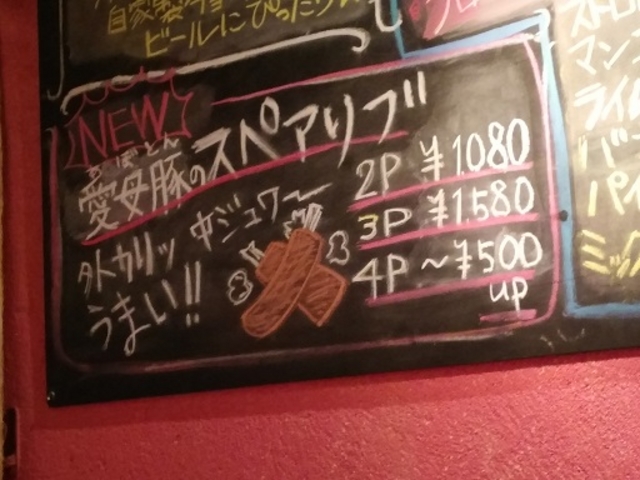 ビールにぴったり
NEW
あぼとん
愛母豚のスペアリブ
外カリッ 中ジュワ〜
うまい!!
2P ¥1080
3P ¥1580
4P 〜¥500
up
マン
ライ
バ
パ
ミッ